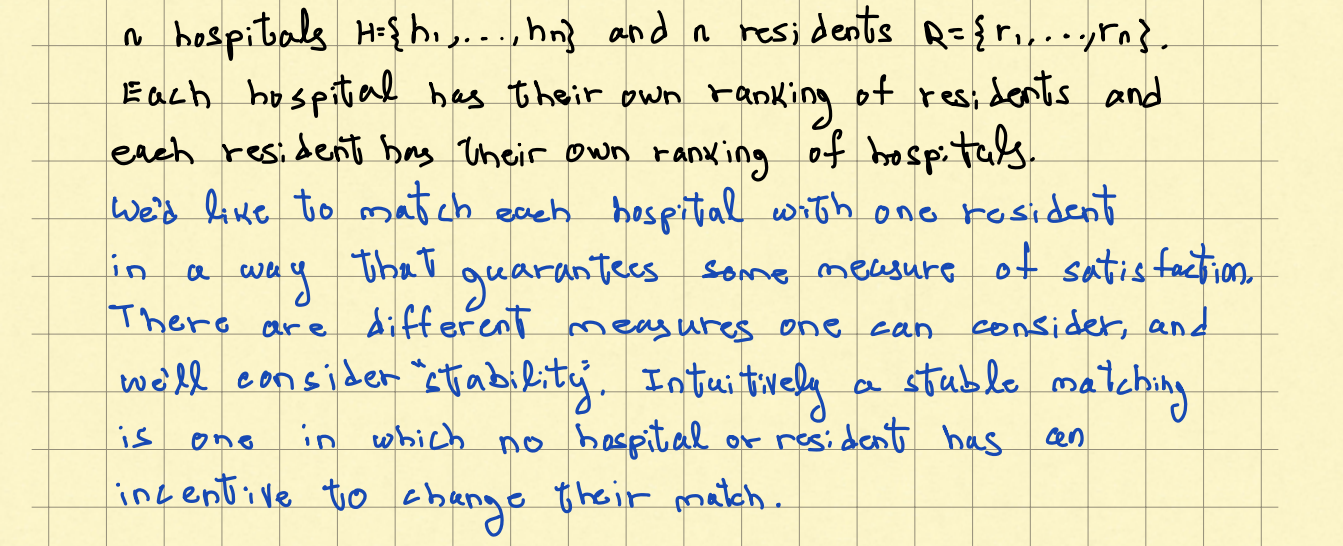 n hospitals H={h1,...,hn} and n residents R={r1,...,rn}.
Each hospital has their own ranking of residents and
each resident has their own ranking of hospitals.
We'd like to match each hospital with one resident
in a way that guarantees some measure of satisfaction.
There are different measures one can consider, and
we'll consider "stability". Intuitively a stable matching
is one in which no hospital or resident has an
incentive to change their match.